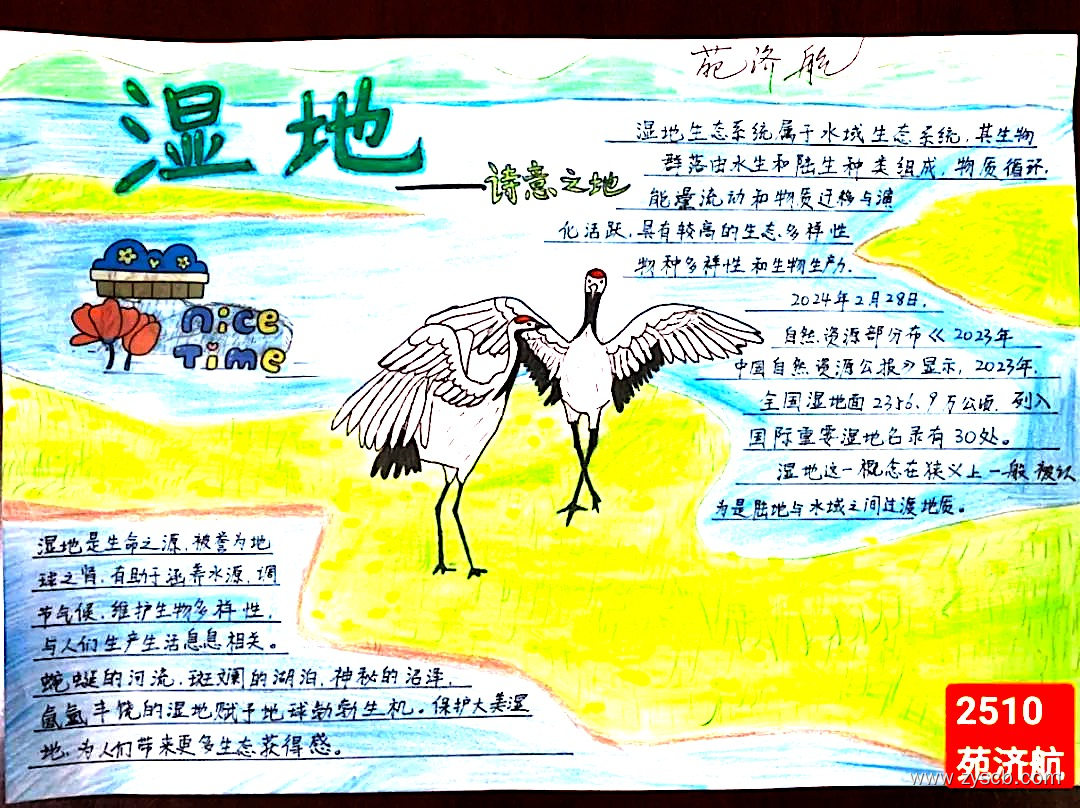 苑济航
湿地
——诗意之地
湿地生态系统属于水域生态系统,其生物
群落由水生和陆生种类组成,物质循环,
能量流动和物质迁移与演
化活跃,具有较高的生态多样性
物种多样性和生物生产力.
2024年2月28日,
自然资源部分布《2023年
中国自然资源公报》显示,2023年,
全国湿地面2356.9万公顷,列入
国际重要湿地名录有30处。
湿地这一概念在狭义上一般被认
为是陆地与水域之间过渡地质。
nice
Time
湿地是生命之源,被誉为地
球之肾,有助于涵养水源,调
节气候,维护生物多样性,
与人们生产生活息息相关。
蜿蜒的河流,斑斓的湖泊,神秘的沼泽,
氤氲丰饶的湿地赋予地球勃勃生机。保护大美湿
地,为人们带来更多生态获得感。
2510
苑济航
www.zyscb.com